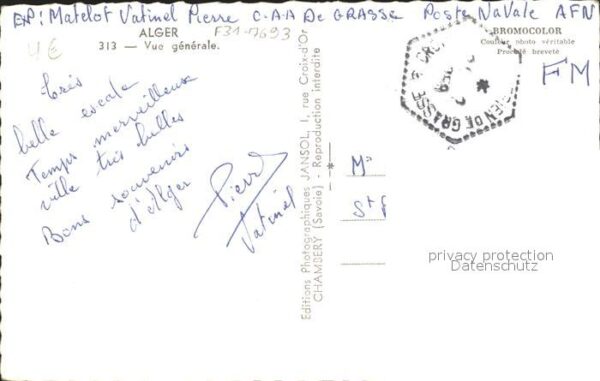 EXP: Matelot Vatinel Pierre C-A-A De GRASSE Poste NaVale AFN
ALGER
F31-7693
313 — Vue générale.
BROMOCOLOR
Couleur photo véritable
Procédé breveté
FM
belle escale
Temps merveilleux
ville très belles
Bons souvenirs
d'Alger
Pierre
Vatinel
Editions Photographiques JANSOL, 1, rue Croix-d'Or
CHAMBERY (Savoie) - Reproduction interdite
DE GRASSE
privacy protection
Datenschutz